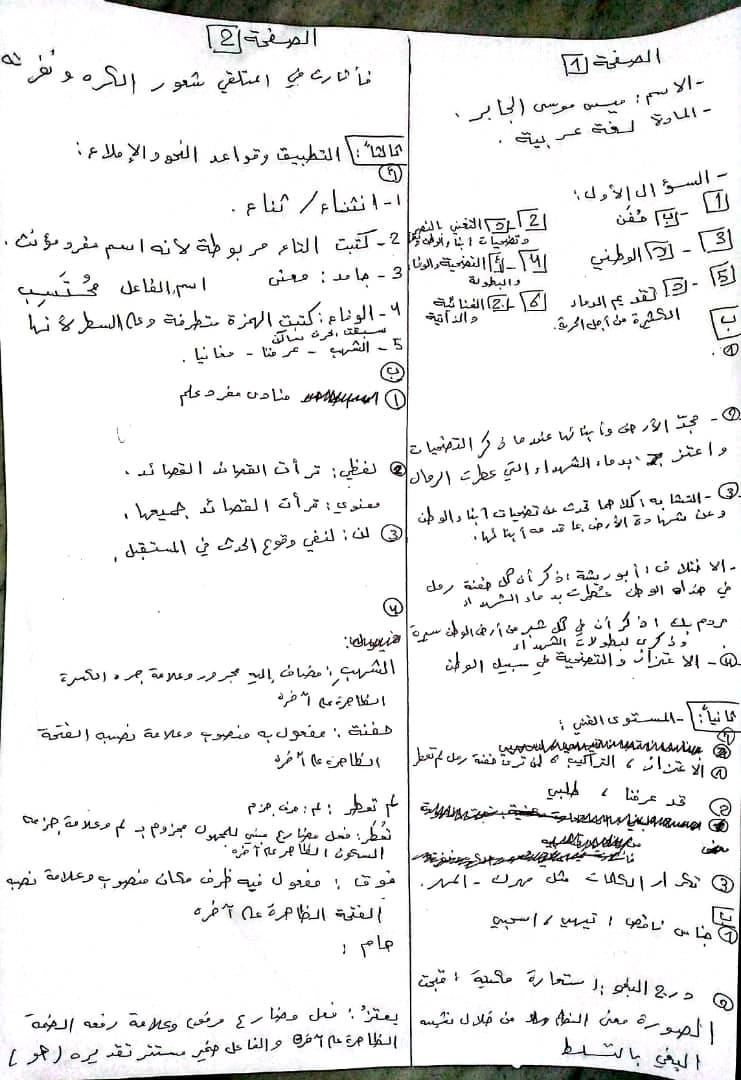 الصفحة 1
- الاسم: ميس موسى الجابر.
- المادة لغة عربية.
- السؤال الأول:
1 - ب هُفَن
2 - د التغني بالنصر وتضحيات أبناء الوطن
3 - د الوطني
4 - أ التضحية والوفاء والبطولة
5 - د تقديم الدماء الكثيرة من أجل الحرية.
6 - 2 الغنائية والذاتية
ب
1.
2 - مجدّ الأرض وأبنائها عندما ذكر التضحيات
واعتز بدماء الشهداء التي عطرت الرمال
3 - التشابه: كلاهما تحدث عن تضحيات أبناء الوطن
وعن شهادة الأرض بما قدمه أبنائها.
- الاختلاف: أبو ريشة: ذكر أن كل حفنة رمل
في هذا الوطن عُطرت بدماء الشهداء
مردم بك: ذكر أن في كل شبر من أرض الوطن سيرة
وذكرى لبطولات الشهداء
4 - الاعتزاز والتضحية في سبيل الوطن
ثانياً: - المستوى الفني:
أ
1 الاعتزاز، التراكيب، لن ترى حفنة رمل لم تعطر
2 قد عرفنا، طلبي
3 تكرار الكلمات مثل مهرك - المهر.
ب
1 جناس ناقص: تيهي، اسحبي
2 درج البغي: استعارة مكنية: قبحت
الصورة معنى الظلم من خلال تشبيه
البغي بالتسلط
الصفحة 2
فأثارت في المتلقي شعور الكره ونفرته
ثالثاً: التطبيق وقواعد النحو والإملاء:
أ
1 - انثناء / ثناء.
2 - كتبت التاء مربوطة لأنه اسم مفرد مؤنث.
3 - جامد: معنى اسم الفاعل مُحتَسِب
4 - الوفاء: كتبت الهمزة متطرفة وعلى السطر لأنها
سبقت بحرف ساكن
5 - الشهب - عرفنا - مغانيا.
ب
1 منادى مفرد علم
2 لفظي: قرأت القصائد القصائد.
معنوي: قرأت القصائد جميعها.
3 لن: لنفي وقوع الحدث في المستقبل.
4
الشهبِ: مضاف إليه مجرور وعلامة جره الكسرة
الظاهرة على آخره
حفنة: مفعول به منصوب وعلامة نصبه الفتحة
الظاهرة على آخره
لم تعطر: لم: حرف جزم
تُعطّر: فعل مضارع مبني للمجهول مجزوم بـ لم وعلامة جزمه
السكون الظاهر على آخره.
فوق: مفعول فيه ظرف مكان منصوب وعلامة نصبه
الفتحة الظاهرة على آخره
حام:
يعتزُ: فعل مضارع مرفوع وعلامة رفعه الضمة
الظاهرة على آخره والفاعل ضمير مستتر تقديره (هو)